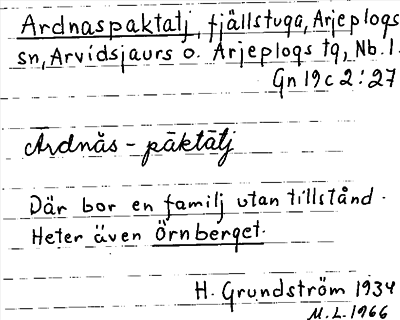 Ardnaspaktatj, fjällstuga, Arjeplogs
sn, Arvidsjaurs o. Arjeplogs tg, Nb. l.
Gn 19c 2:27
Ardnàs - pāktàtj
Där bor en familj utan tillstånd.
Heter även Örnberget.
H. Grundström 1934
M.L. 1966